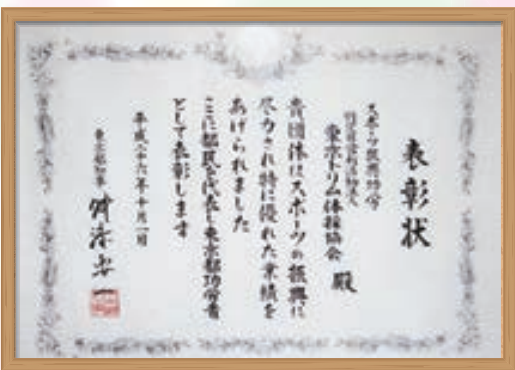 表彰状
スポーツ振興功労
特定非営利活動法人
東京ドリム体操協会 殿
貴団体はスポーツの振興に
尽力され特に優れた業績を
あげられました
ここに都民を代表し東京都功労者
として表彰します
平成二十六年十月一日
東京都知事 舛添要一